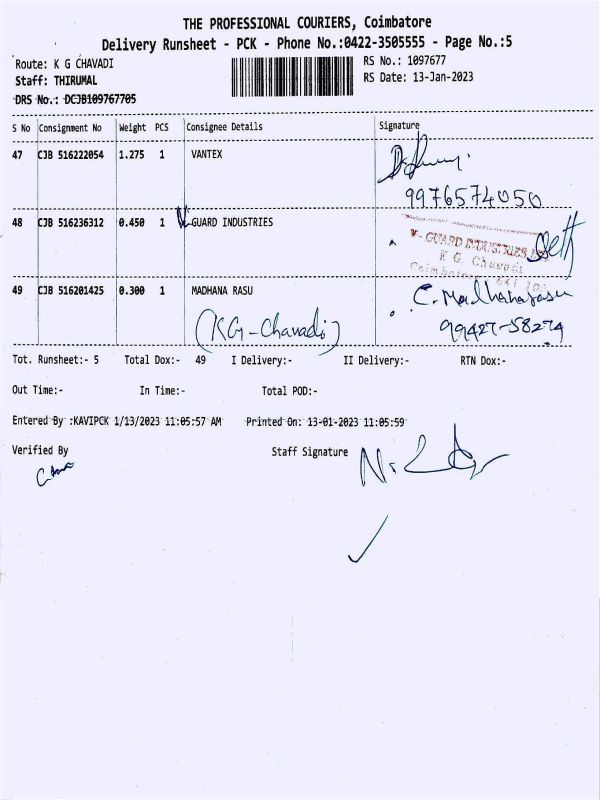 THE PROFESSIONAL COURIERS, Coimbatore
Delivery Runsheet - PCK - Phone No.:0422-3505555 - Page No.:5
Route: K G CHAVADI
RS No.: 1097677
Staff: THIRUMAL
RS Date: 13-Jan-2023
DRS No.: DCJB109767705
S No Consignment No Weight PCS Consignee Details Signature
47 CJB 516222054 1.275 1 VANTEX
9976574050
48 CJB 516236312 0.450 1 V-GUARD INDUSTRIES
V-GUARD INDUSTRIES
K G Chavadi
Coimbatore
49 CJB 516201425 0.300 1 MADHANA RASU C. Madhanarasu
(KG-Chavadi) 99427-58274
Tot. Runsheet:- 5 Total Dox:- 49 I Delivery:- II Delivery:- RTN Dox:-
Out Time:- In Time:- Total POD:-
Entered By :KAVIPCK 1/13/2023 11:05:57 AM Printed On: 13-01-2023 11:05:59
Verified By Staff Signature